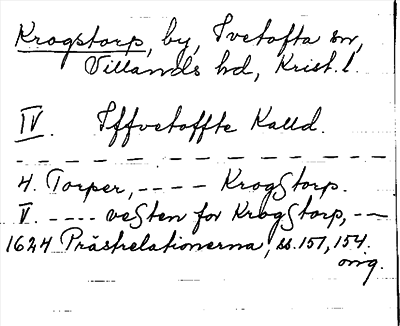 Krogstorp, by, Ivetofta sn,
Villands hd, Krist. l.
IV. Iffvetoffte Kalld.
— — — — — — — — — — — —
4. Torper, - - - - KrogStorp.
V. - - - - veSten for KrogStorp, - -
1624 Prästrelationerna, ss. 151, 154.
orig.